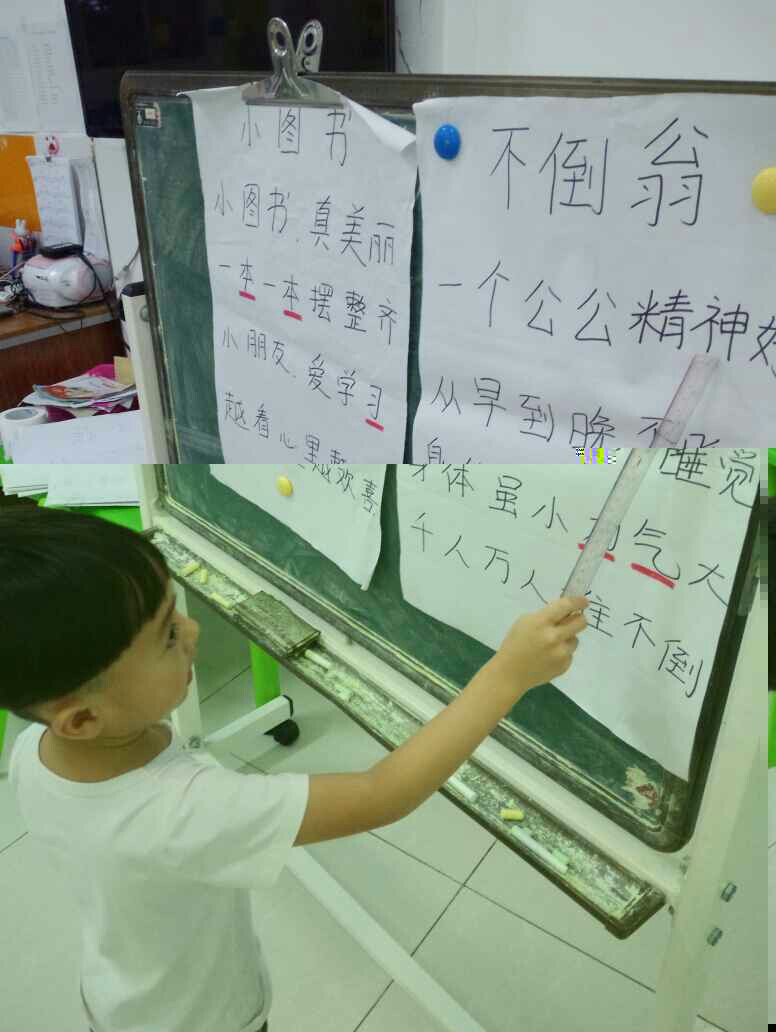 小图书
小图书、真美丽
一本一本摆整齐
小朋友、爱学习
越看心里越欢喜
不倒翁
一个公公精神好
从早到晚不睡觉
身体虽小力气大
千人万人推不倒